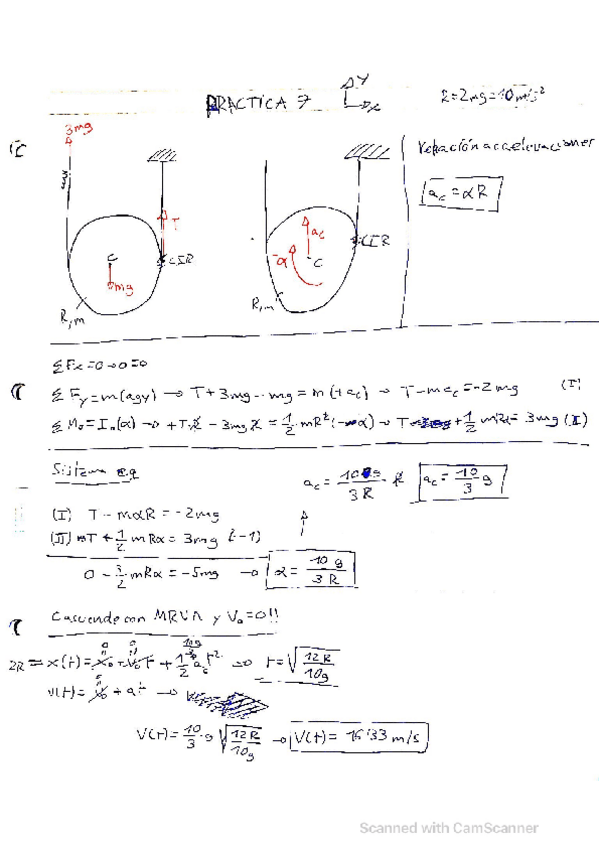 PRACTICA 7
Y
x
R=2m g=10m/s²
3mg
T
C
CIR
mg
R,m
ac
-α
C
CIR
R,m
Relación acceleraciones
ac = αR
ΣFx=0→0=0
ΣFy=m(agy) → T+3mg-mg=m(+ac) → T-mac=-2mg (I)
ΣMo=Io(α) → +TR - 3mgR = 1/2 mR²(-α) → T + 1/2 mRα = 3mg (I)
Sistema eq
ac = 10g/3R · R ac = 10/3 g
(I) T - mαR = -2mg
(II) T + 1/2 mRα = 3mg (-1)
0 - 3/2 mRα = -5mg → α = 10g/3R
con MRUA y Vo=0!!
2R = x(t) = xo + Vo t + 1/2 ac t² → t = √12R/10g
v(t) = vo + at →
V(t) = 10/3 · g √12R/10g → V(t) = 16'33 m/s
Scanned with CamScanner